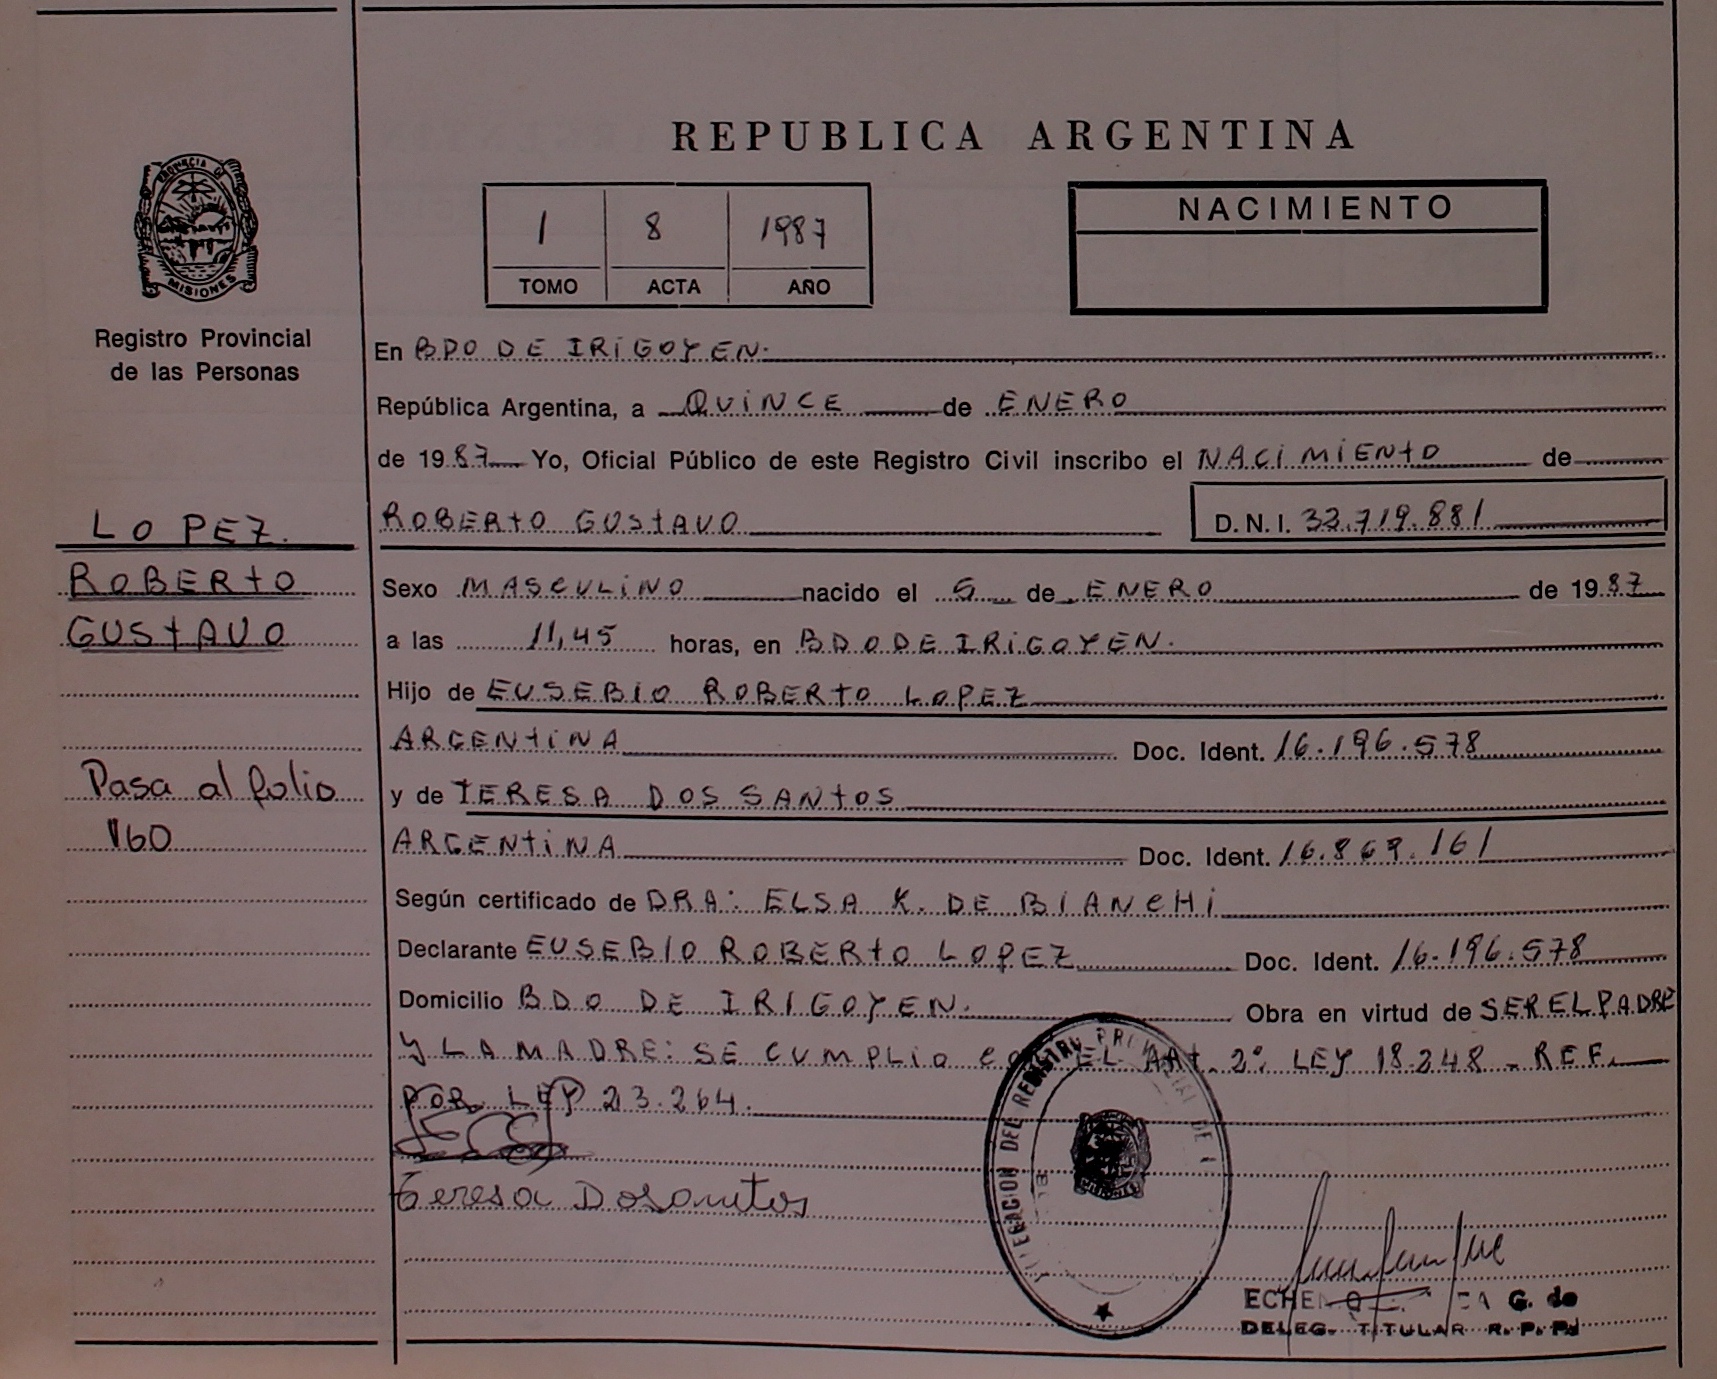 REPUBLICA ARGENTINA
PROVINCIA DE
MISIONES
Registro Provincial
de las Personas
1 8 1987
TOMO ACTA AÑO
NACIMIENTO
En BDO DE IRIGOYEN.
República Argentina, a QUINCE de ENERO
de 1987 Yo, Oficial Público de este Registro Civil inscribo el NACIMIENTO de
ROBERTO GUSTAVO D. N. I. 32.719.881
LOPEZ.
ROBERTO
GUSTAVO
Sexo MASCULINO nacido el 5 de ENERO de 1987
a las 11,45 horas, en BDO DE IRIGOYEN.
Hijo de EUSEBIO ROBERTO LOPEZ
ARGENTINA Doc. Ident. 16.196.578
y de TERESA DOS SANTOS
ARGENTINA Doc. Ident. 16.869.161
Pasa al folio
160
Según certificado de DRA: ELSA K. DE BIANCHI
Declarante EUSEBIO ROBERTO LOPEZ Doc. Ident. 16.196.578
Domicilio BDO DE IRIGOYEN. Obra en virtud de SER EL PADRE
Y LA MADRE: SE CUMPLIO EL ART. 2º LEY 18.248 - REF.
POR LEY 23.264.
Teresa Dosantos
DEL REGISTRO PROVINCIAL DE
MISIONES
G. de
DELEG. TITULAR R. P. P.